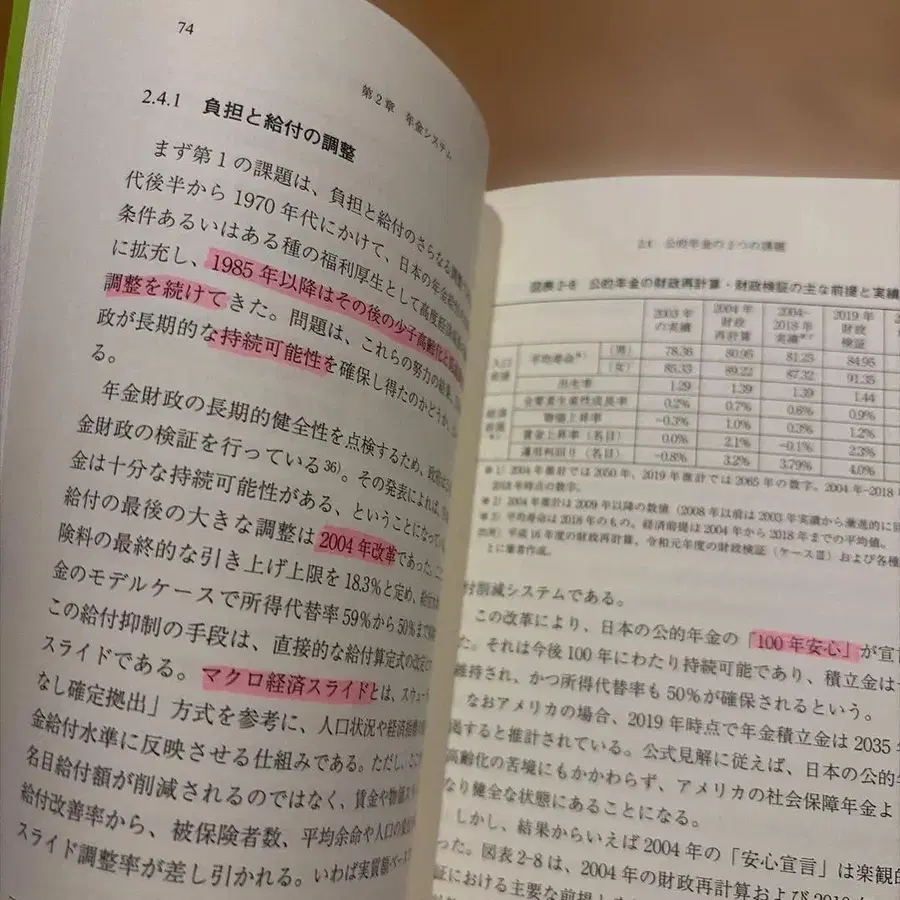 74
第2章 年金システム
2.4.1 負担と給付の調整
まず第1の課題は、負担と給付のさらなる調整
代後半から1970年代にかけて、日本の年金給付
条件あるいはある種の福利厚生として高度経済成長
に拡充し、1985年以降はその後の少子高齢化と
調整を続けてきた。問題は、これらの努力の結果、
政が長期的な持続可能性を確保し得たのかどうか
る。
年金財政の長期的健全性を点検するため、政府は
金財政の検証を行っている36)。その発表によれば、
金は十分な持続可能性がある、ということになって
給付の最後の大きな調整は2004年改革であった。
険料の最終的な引き上げ上限を18.3%と定め、給付
金のモデルケースで所得代替率59%から50%まで
この給付抑制の手段は、直接的な給付算定式の改定
スライドである。マクロ経済スライドとは、スウェー
なし確定拠出」方式を参考に、人口状況や経済指標の
金給付水準に反映させる仕組みである。ただし、ここ
名目給付額が削減されるのではなく、賃金や物価
給付改善率から、被保険者数、平均余命や人口の
スライド調整率が差し引かれる。いわば実質額ベース
2.4 公的年金の3つの課題
図表2-8 公的年金の財政再計算・財政検証の主な前提と実績
2003年の実績 2004年財政再計算 2004-2018年実績 2019年財政検証
人口前提 平均寿命 (男) 78.36 80.95 81.25 84.95
(女) 85.33 89.22 87.32 91.35
出生率 1.29 1.39 1.39 1.44
経済前提 全要素生産性成長率 0.2% 0.7% 0.6% 0.9%
物価上昇率 -0.3% 1.0% 0.3% 1.2%
賃金上昇率(名目) 0.0% 2.1% -0.1% 2.3%
運用利回り(名目) -0.8% 3.2% 3.79% 4.0%
*1) 2004年推計では2050年、2019年推計では2065年の数字。2004年-2018
2018年時点の数字。
*2) 2004年推計は2009年以降の数値(2008年以前は2003年実績から漸進的に
*3) 平均寿命は2018年のもの。経済前提は2004年から2018年までの平均値。
出所)平成16年度の財政再計算、令和元年度の財政検証(ケースIII)および各種
に筆者作成。
付削減システムである。
この改革により、日本の公的年金の「100年安心」が宣
た。それは今後100年にわたり持続可能であり、積立金は
維持され、かつ所得代替率も50%が確保されるという。
なおアメリカの場合、2019年時点で年金積立金は2035年
渇すると推計されている。公式見解に従えば、日本の公的
高齢化の苦境にもかかわらず、アメリカの社会保障年金よ
なり健全な状態にあることになる。
しかし、結果からいえば2004年の「安心宣言」は楽観的
った。図表2-8は、2004年の財政再計算および2019
証における主要な前提